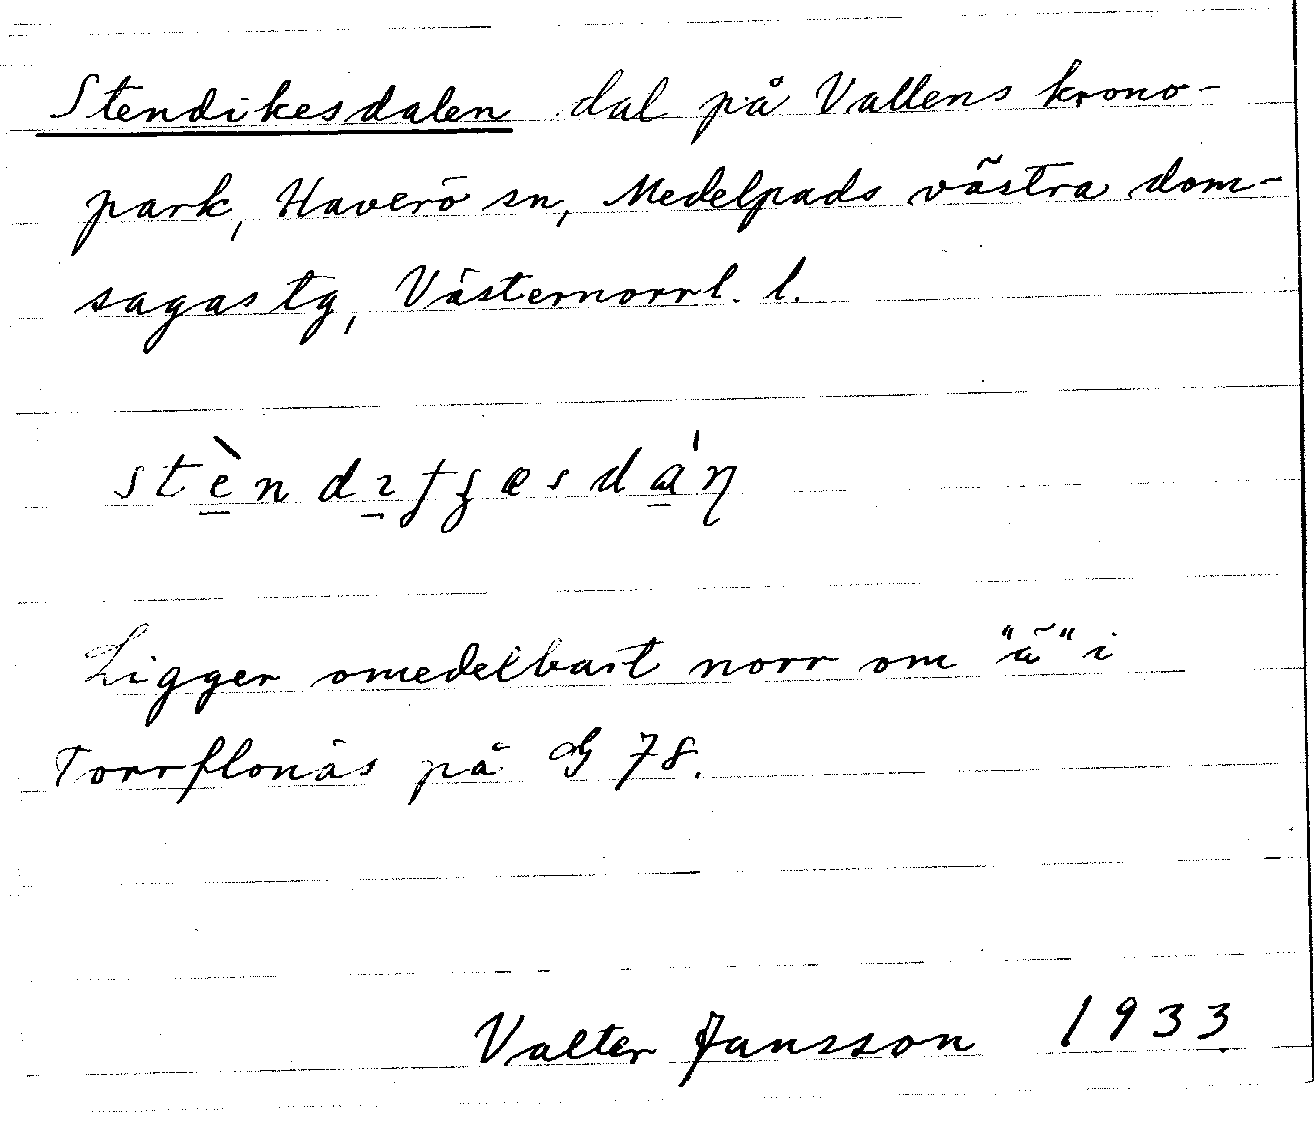 Stendikesdalen dal på Vallens krono-
park, Haverö sn, Medelpads västra dom-
sagas tg, Västernorrl. l.
Ligger omedelbart norr om "ä" i
Torrflonäs på G 78.
Valter Jansson 1933